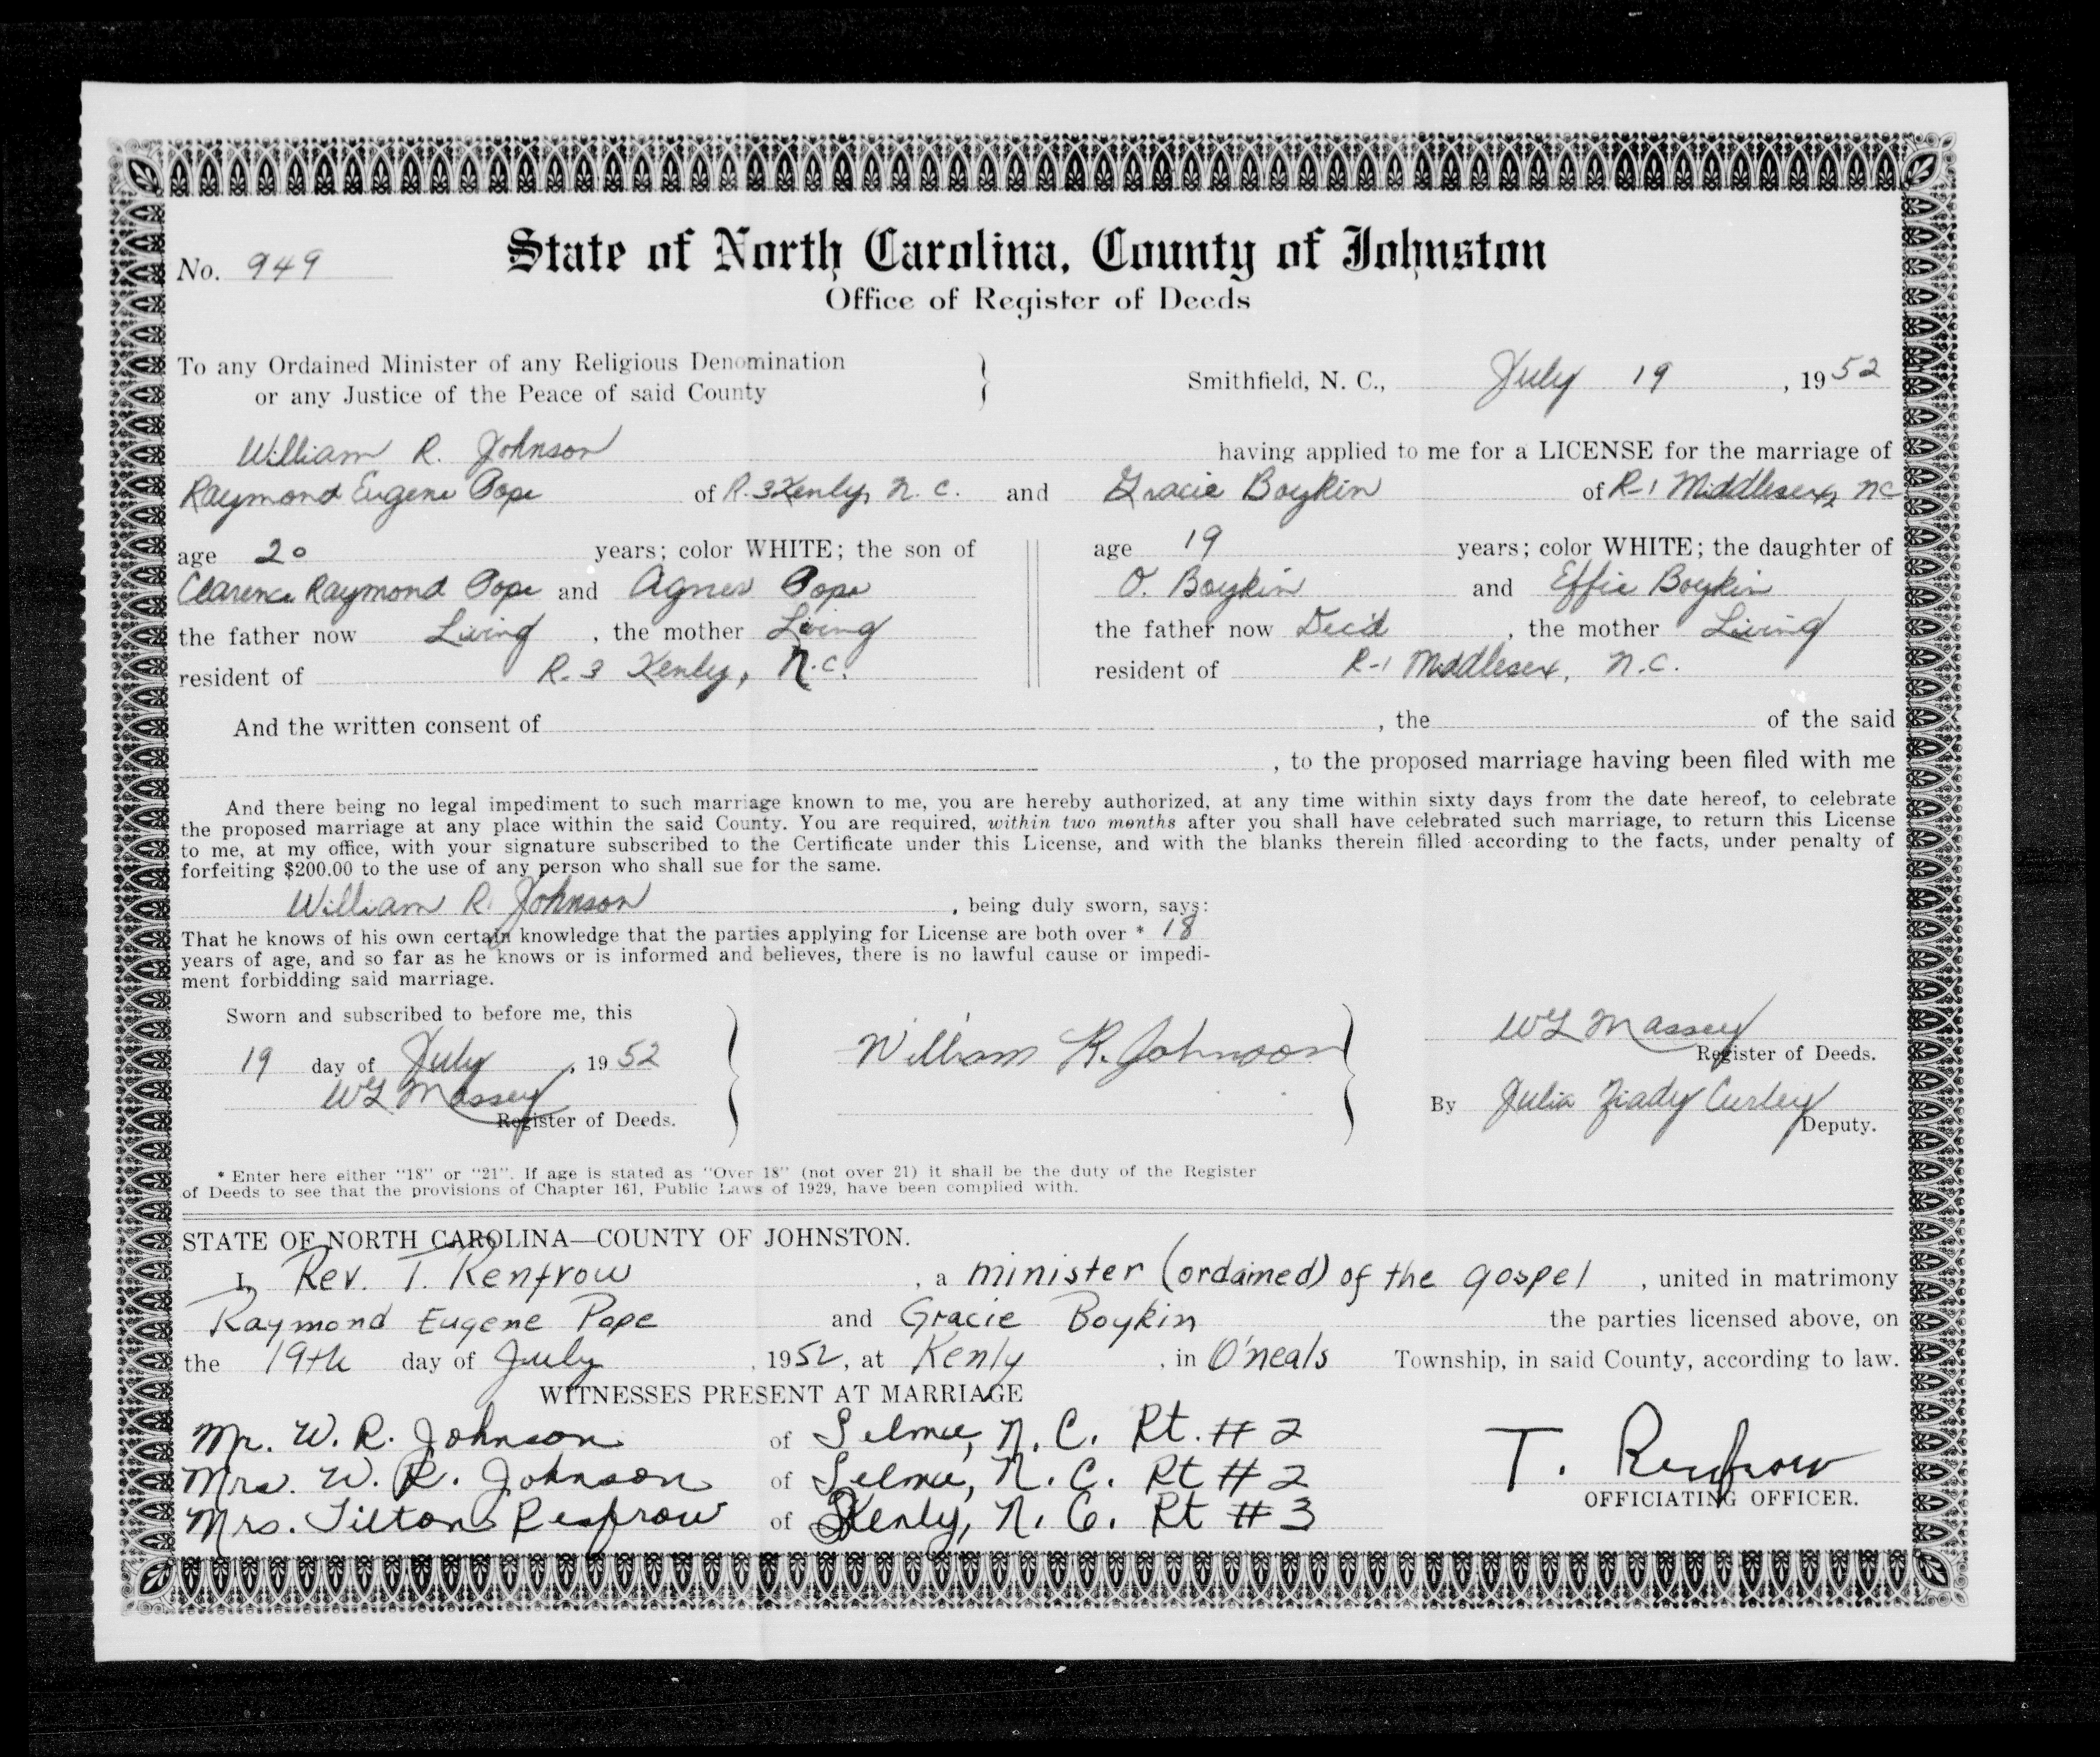 No. 949
State of North Carolina, County of Johnston
Office of Register of Deeds
To any Ordained Minister of any Religious Denomination
or any Justice of the Peace of said County
Smithfield, N. C., July 19, 1952
William R. Johnson having applied to me for a LICENSE for the marriage of
Raymond Eugene Pope of R. 3 Kenly, N. C. and Gracie Boykin of R-1 Middlesex, NC
age 20 years; color WHITE; the son of age 19 years; color WHITE; the daughter of
Clarence Raymond Pope and Agnes Pope O. Boykin and Effie Boykin
the father now Living, the mother Living the father now Dec'd, the mother Living
resident of R. 3 Kenly, N.C. resident of R-1 Middlesex, N.C.
And the written consent of , the of the said
, to the proposed marriage having been filed with me
And there being no legal impediment to such marriage known to me, you are hereby authorized, at any time within sixty days from the date hereof, to celebrate
the proposed marriage at any place within the said County. You are required, within two months after you shall have celebrated such marriage, to return this License
to me, at my office, with your signature subscribed to the Certificate under this License, and with the blanks therein filled according to the facts, under penalty of
forfeiting $200.00 to the use of any person who shall sue for the same.
William R. Johnson, being duly sworn, says:
That he knows of his own certain knowledge that the parties applying for License are both over * 18
years of age, and so far as he knows or is informed and believes, there is no lawful cause or impedi-
ment forbidding said marriage.
Sworn and subscribed to before me, this
19 day of July, 1952
W L Massey
Register of Deeds.
William R. Johnson
W L Massey
Register of Deeds.
By Julia Ziady Curley
Deputy.
* Enter here either "18" or "21". If age is stated as "Over 18" (not over 21) it shall be the duty of the Register
of Deeds to see that the provisions of Chapter 161, Public Laws of 1929, have been complied with.
STATE OF NORTH CAROLINA—COUNTY OF JOHNSTON.
I, Rev. T. Renfrow, a minister (ordained) of the gospel, united in matrimony
Raymond Eugene Pope and Gracie Boykin the parties licensed above, on
the 19th day of July, 1952, at Kenly, in O'neals Township, in said County, according to law.
WITNESSES PRESENT AT MARRIAGE
Mr. W. R. Johnson of Selma, N. C. Rt. # 2
Mrs. W. R. Johnson of Selma, N. C. Rt # 2
Mrs. Tilton Renfrow of Kenly, N. C. Rt # 3
T. Renfrow
OFFICIATING OFFICER.